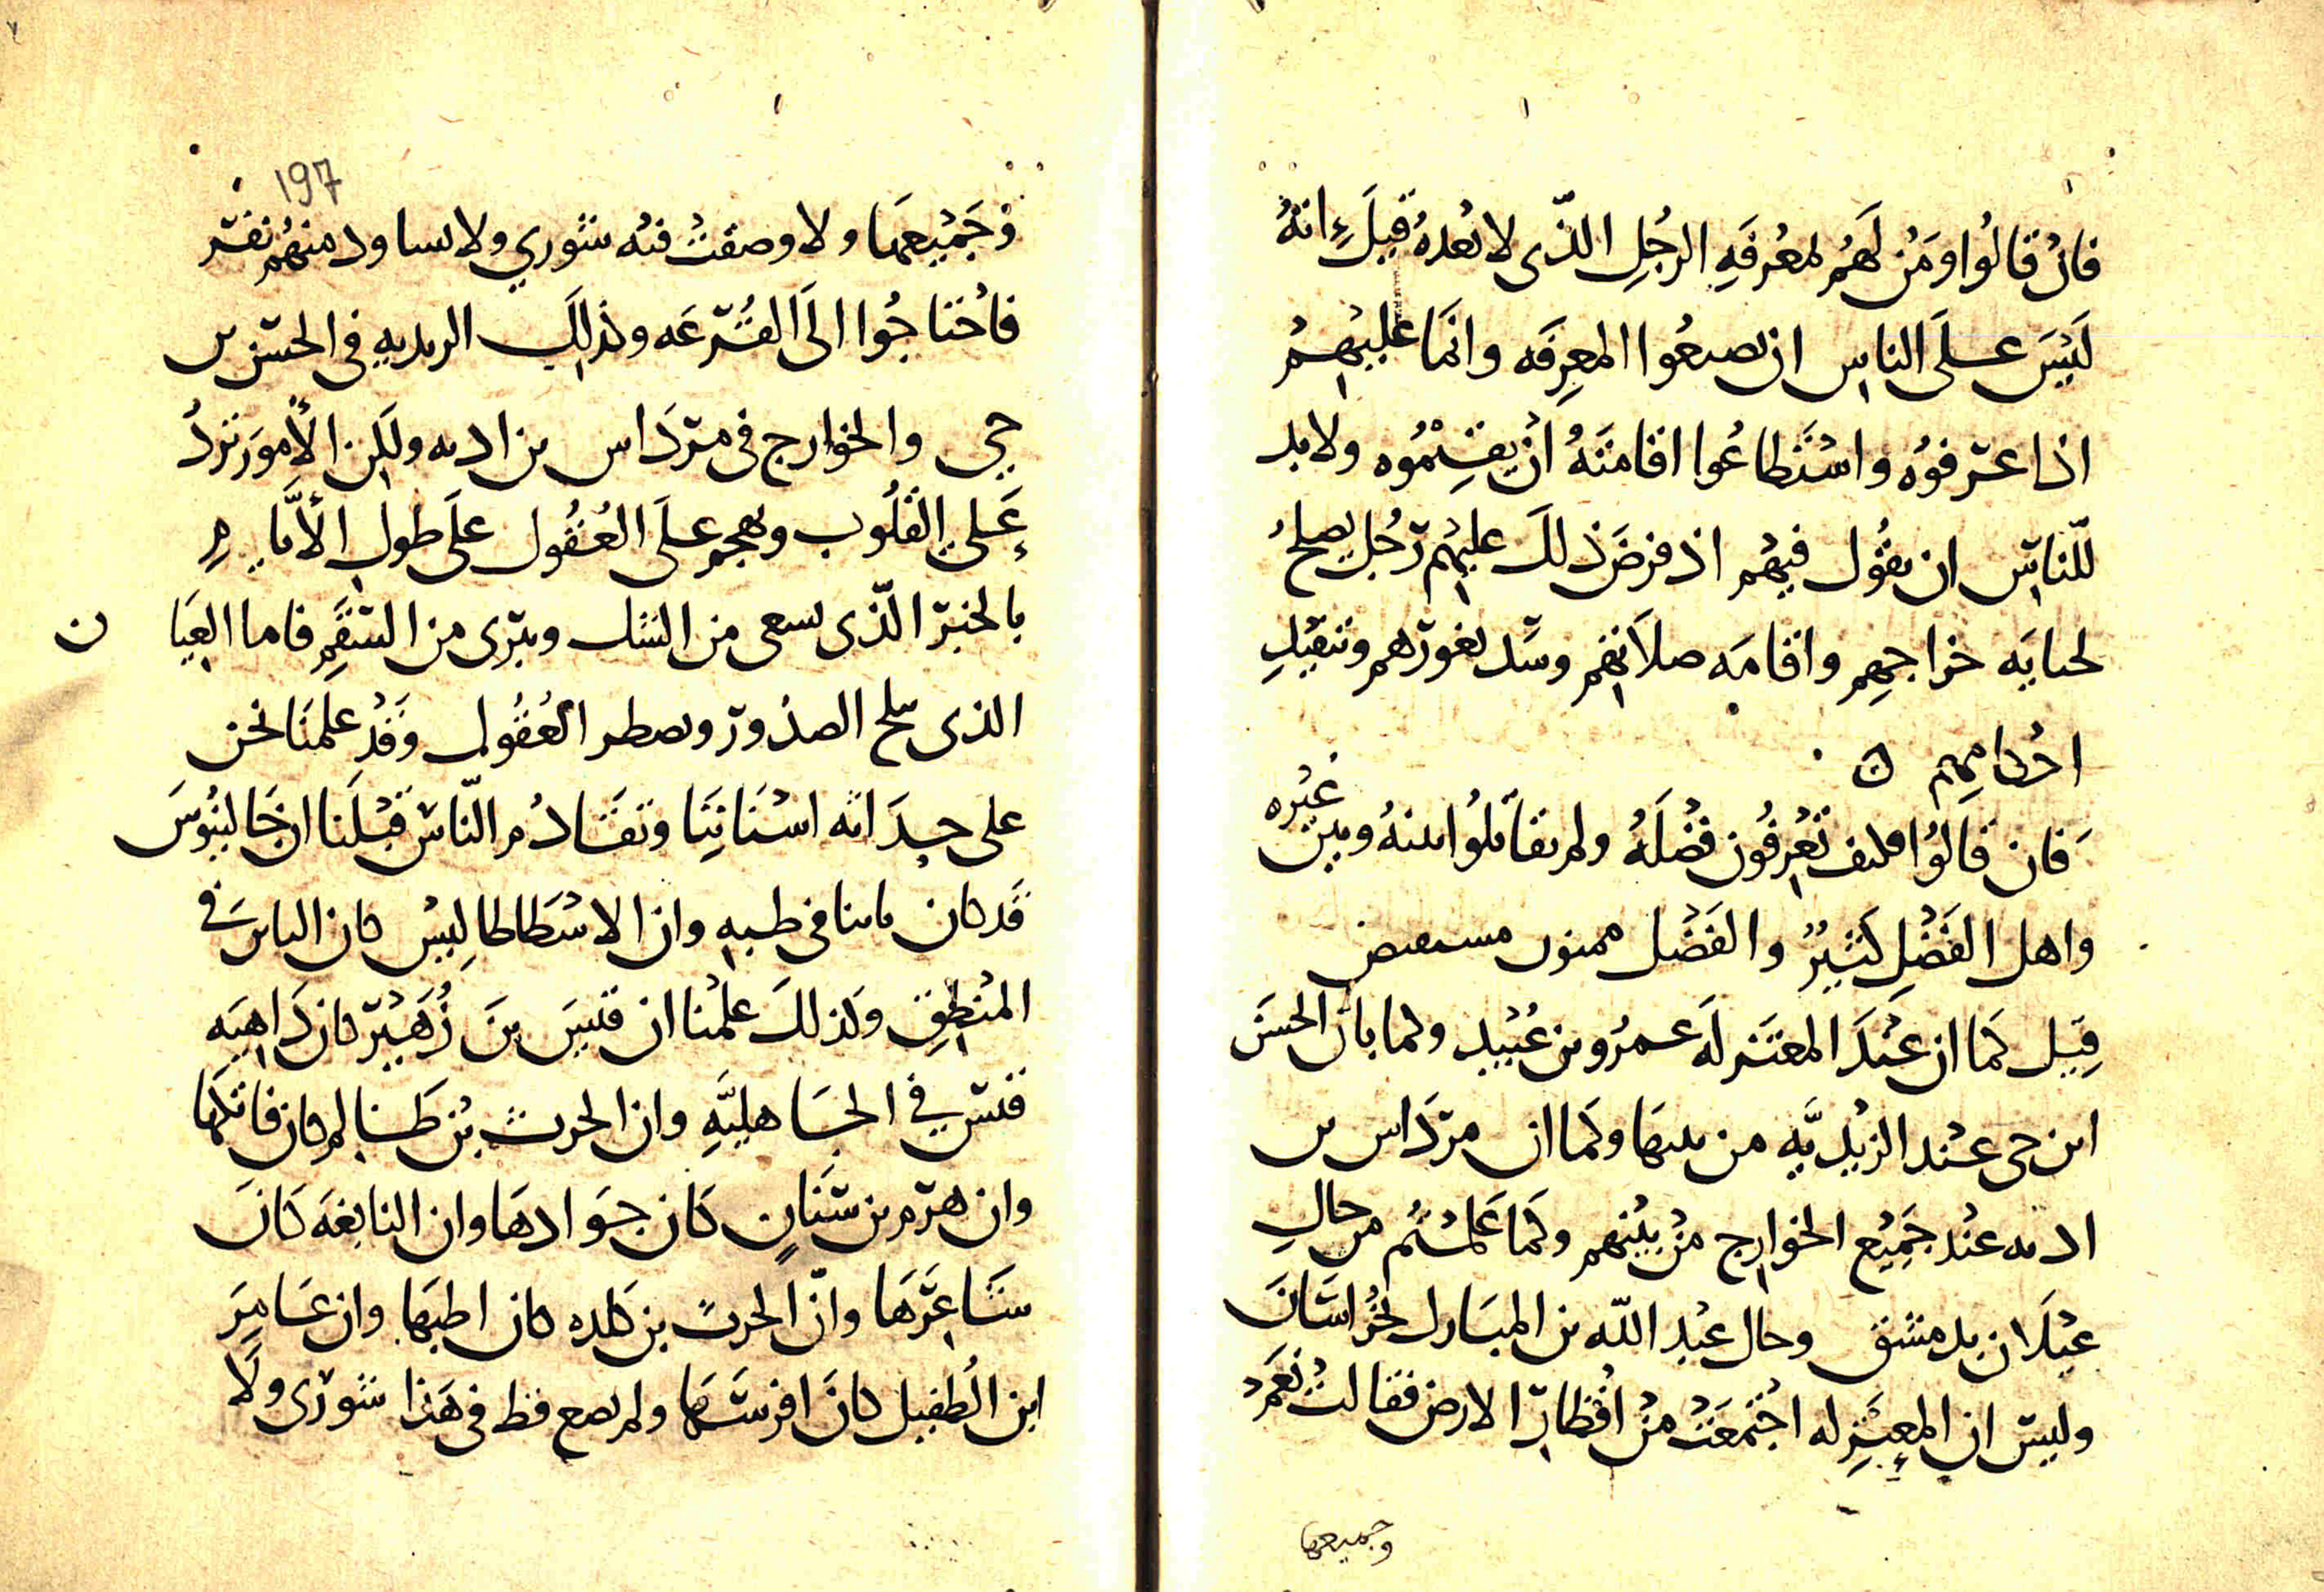 فان قالوا ومن لهم لمعرفه الرجل الذى لا بعده قيل انه
ليس على الناس ان يصعوا المعرفه وانما عليهم
اذا عرفوه واستطاعوا اقامته ان يقيموه ولا بد
للناس ان يقول فيهم اذ فرض ذلك عليهم رجل يصلح
لحبايه خراجهم واقامه صلاتهم وسد ثغورهم وتنفيد
احكامهم ٥
فان قالوا فكيف تعرفون فضله ولم تقابلوا بينه وبين غيره
واهل الفضل كثير والفضل ممنون مستفيض
قيل كما ان عند المعتزله عمرو بن عبيد وكما بان الحسن
ابن حى عند الزيديه من بينها وكما ان مرداس بن
اديه عند جميع الخوارج من بينهم وكما علمتم من حال
غيلان بدمشق وحال عبد الله بن المبارك بخراسان
وليس ان المعتزله اجتمعت من اقطار الارض فقالت نعم
وجميعها
197
وجميعها ولا وصفت فيه شورى ولا تساود منهم نفر
فاحتاجوا الى القرعه وكذلك الزيديه فى الحسن بن
حى والخوارج فى مرداس بن اديه ولكن الامور ترد
على القلوب وتهجم على العقول على طول الايام
بالخبر الذى يسعى من الشك ويبرى من السقم فاما العيان
الذى يثلج الصدور ويضطر العقول وقد علمنا نحن
على حداثه اسناننا وتقادم الناس قبلنا ان جالينوس
قد كان باينا فى طبه وان الاسطاطاليس كان الباس فى
المنطق وكذلك علمنا ان قيس بن زهير كان داهيه
قيس فى الجاهليه وان الحرث بن ظالم كان فاتكها
وان هرم بن سنان كان جوادها وان النابغه كان
شاعرها وان الحرث بن كلده كان اطبها وان عامر
ابن الطفيل كان افرسها ولم يصع قط فى هذا شورى ولا